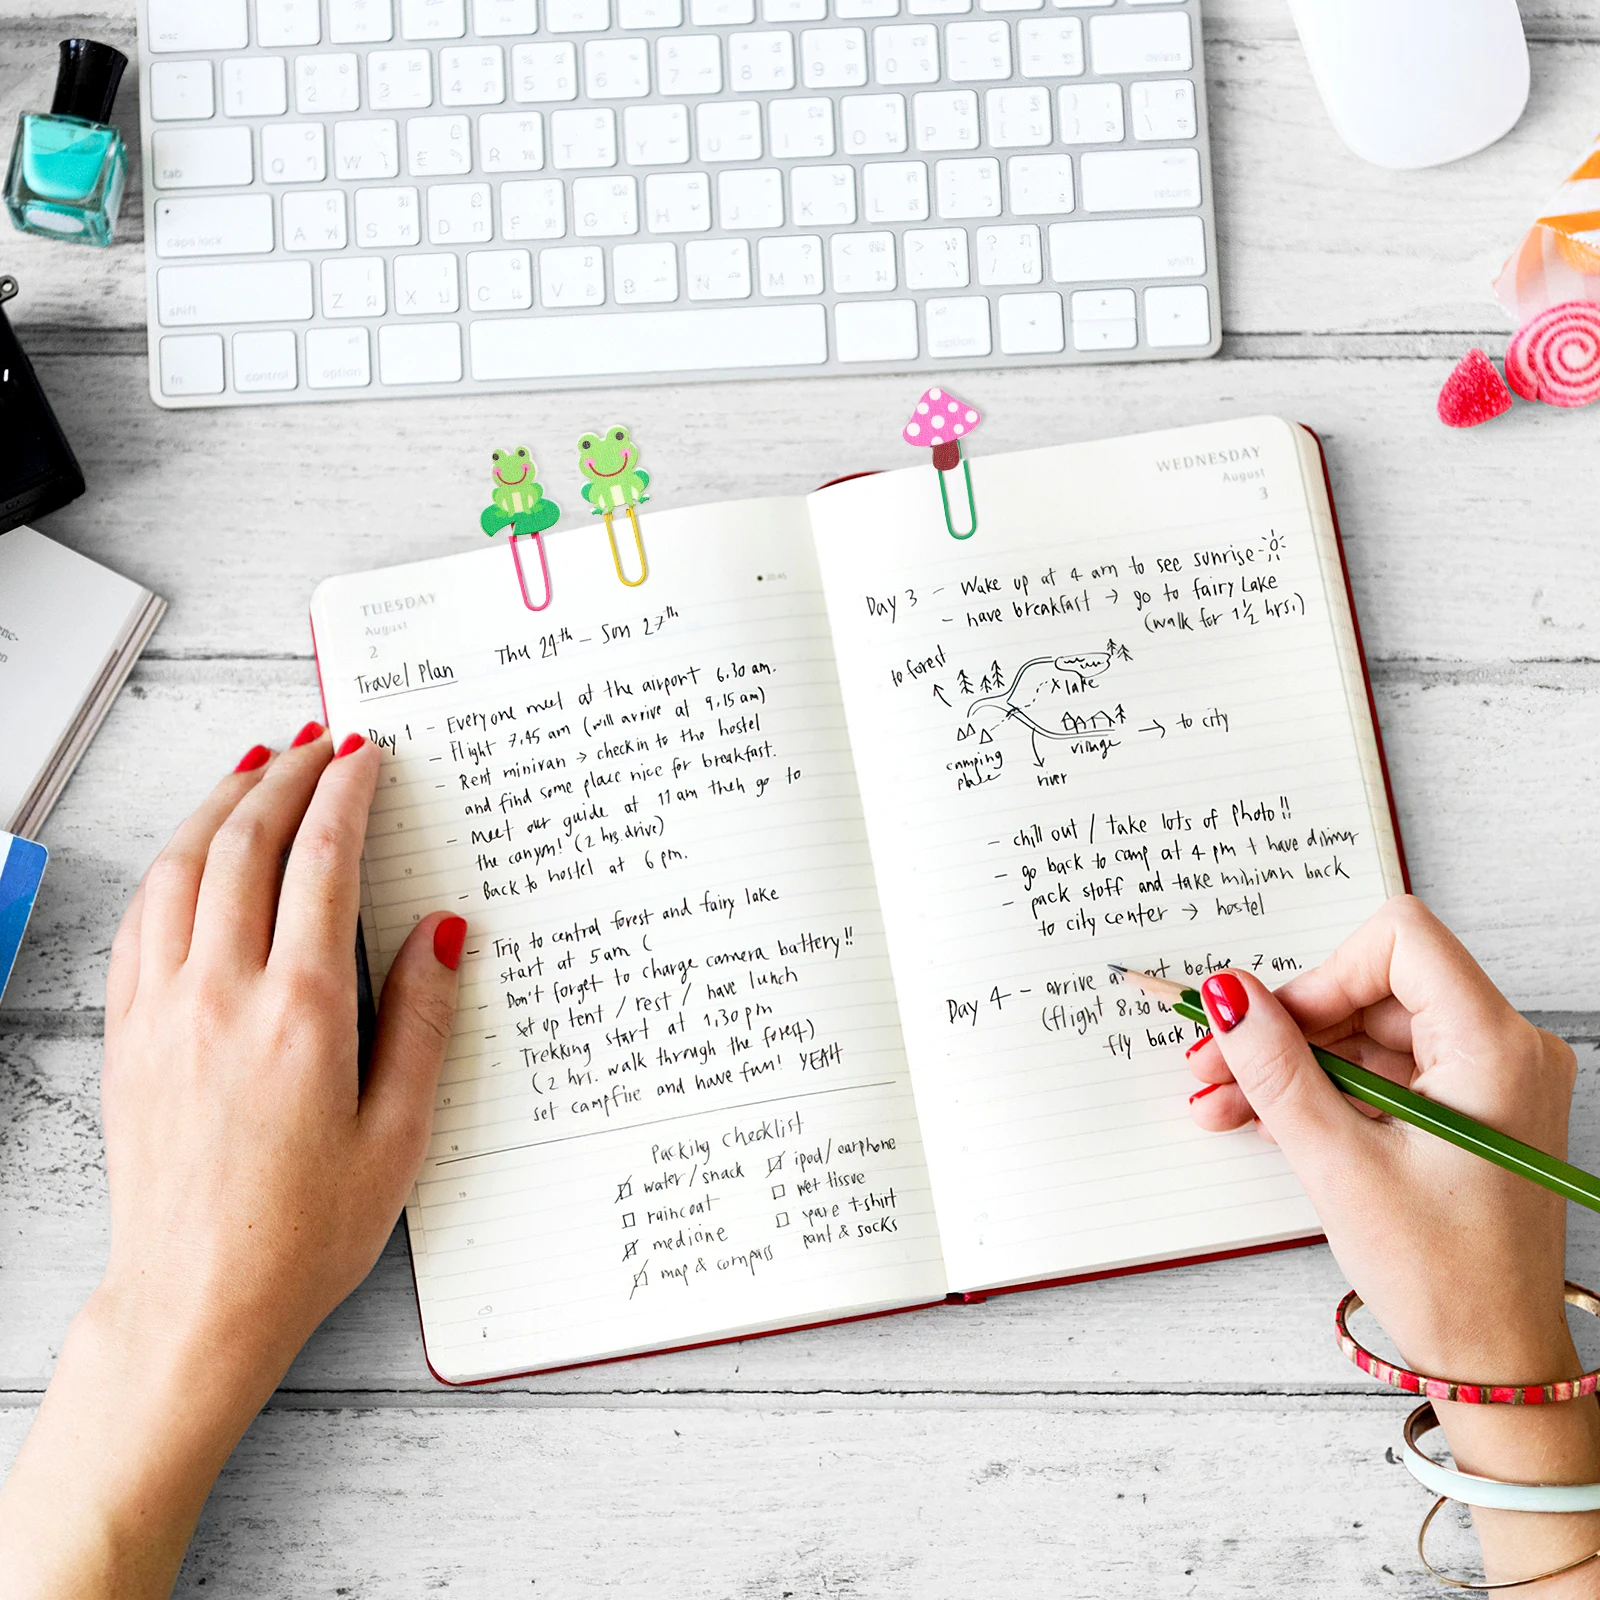 esc
1 2 3 4 5 6 7 8 9 0
delete
tab Q W E R T Y U I O P
caps lock A S D F G H J K L
return
shift Z X C V B N M < > ?
shift
fn control option
option
TUESDAY
August
2
Thu 24th - Sun 27th
Travel Plan
Day 1 - Everyone meet at the airport 6.30 am.
- Flight 7.45 am (will arrive at 9.15 am)
- Rent minivan → check in to the hostel
and find some place nice for breakfast.
- Meet our guide at 11 am then go to
the canyon! (2 hrs. drive)
- Back to hostel at 6 pm.
- Trip to central forest and fairy lake
start at 5 am (
- Don't forget to charge camera battery!!
- set up tent / rest / have lunch
- Trekking start at 1.30 pm
(2 hrs. walk through the forest)
set campfire and have fun! YEAH
Packing Checklist
water / snack
raincoat
medicine
map & compass
ipod / earphone
wet tissue
spare t-shirt
pant & socks
WEDNESDAY
August
3
Day 3 - Wake up at 4 am to see sunrise
- have breakfast → go to fairy Lake
(walk for 1 1/2 hrs.)
to forest
x lake
camping
place
river
village
→ to city
- chill out / take lots of photo!!
- go back to camp at 4 pm + have dinner
- pack stoff and take minivan back
to city center → hostel
Day 4 - arrive before 7 am.
(flight 8.30
fly back